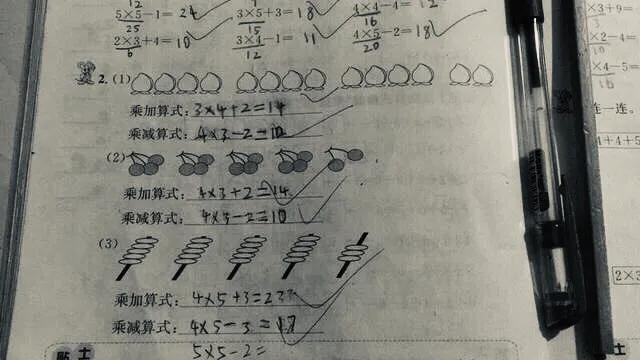 12
5×5-1=24 3×5+3=18 4×4-4=12
25 15 16
2×3+4=10 3×4-1=11 4×5-2=18
6 12 20
×3+9=
3
×2-4=
×4-5=
16
2.(1)
乘加算式:3×4+2=14
乘减算式:4×3-2=10
连一连。
4+4+5
(2)
乘加算式:4×3+2=14
乘减算式:4×3-2=10
(3)
2×3
乘加算式:4×5+3=23
乘减算式:4×5-3=17
5×5-2=
贴士